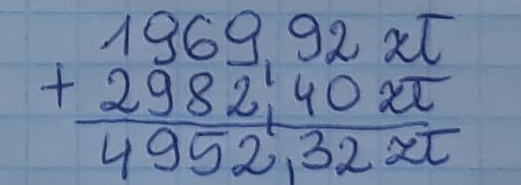 1969,92 zł
+ 2982,40 zł
4952,32 zł